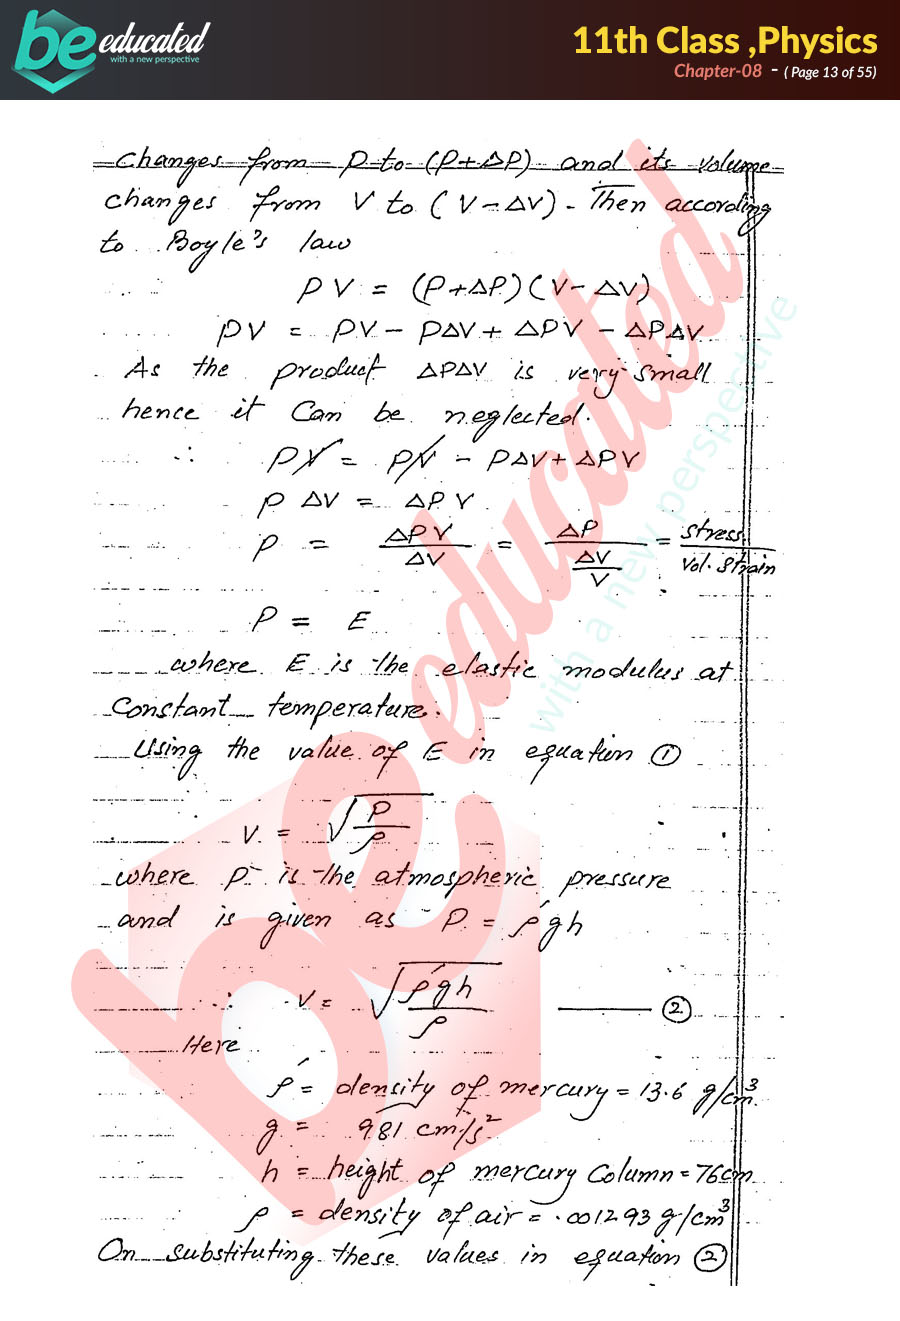 be educated
with a new perspective
11th Class ,Physics
Chapter-08 - ( Page 13 of 55)
changes from P to (P+ΔP) and its volume
changes from V to (V-ΔV). Then according
to Boyle's law
PV = (P+ΔP)(V-ΔV)
PV = PV - PΔV + ΔPV - ΔPΔV
As the product ΔPΔV is very small
hence it Can be neglected.
∴ PV = PV - PΔV + ΔPV
P ΔV = ΔP V
P = ΔP V / ΔV = ΔP / (ΔV / V) = stress / Vol. strain
P = E
where E is the elastic modulus at
Constant temperature.
Using the value of E in equation ①
V = √(P / ρ)
where P is the atmospheric pressure
and is given as P = ρ́gh
∴ V = √(ρ́gh / ρ) ——— ②
Here
ρ́ = density of mercury = 13.6 g/cm³
g = 981 cm/s²
h = height of mercury Column = 76cm
ρ = density of air = .001293 g/cm³
On substituting these values in equation ②
be educated
with a new perspective